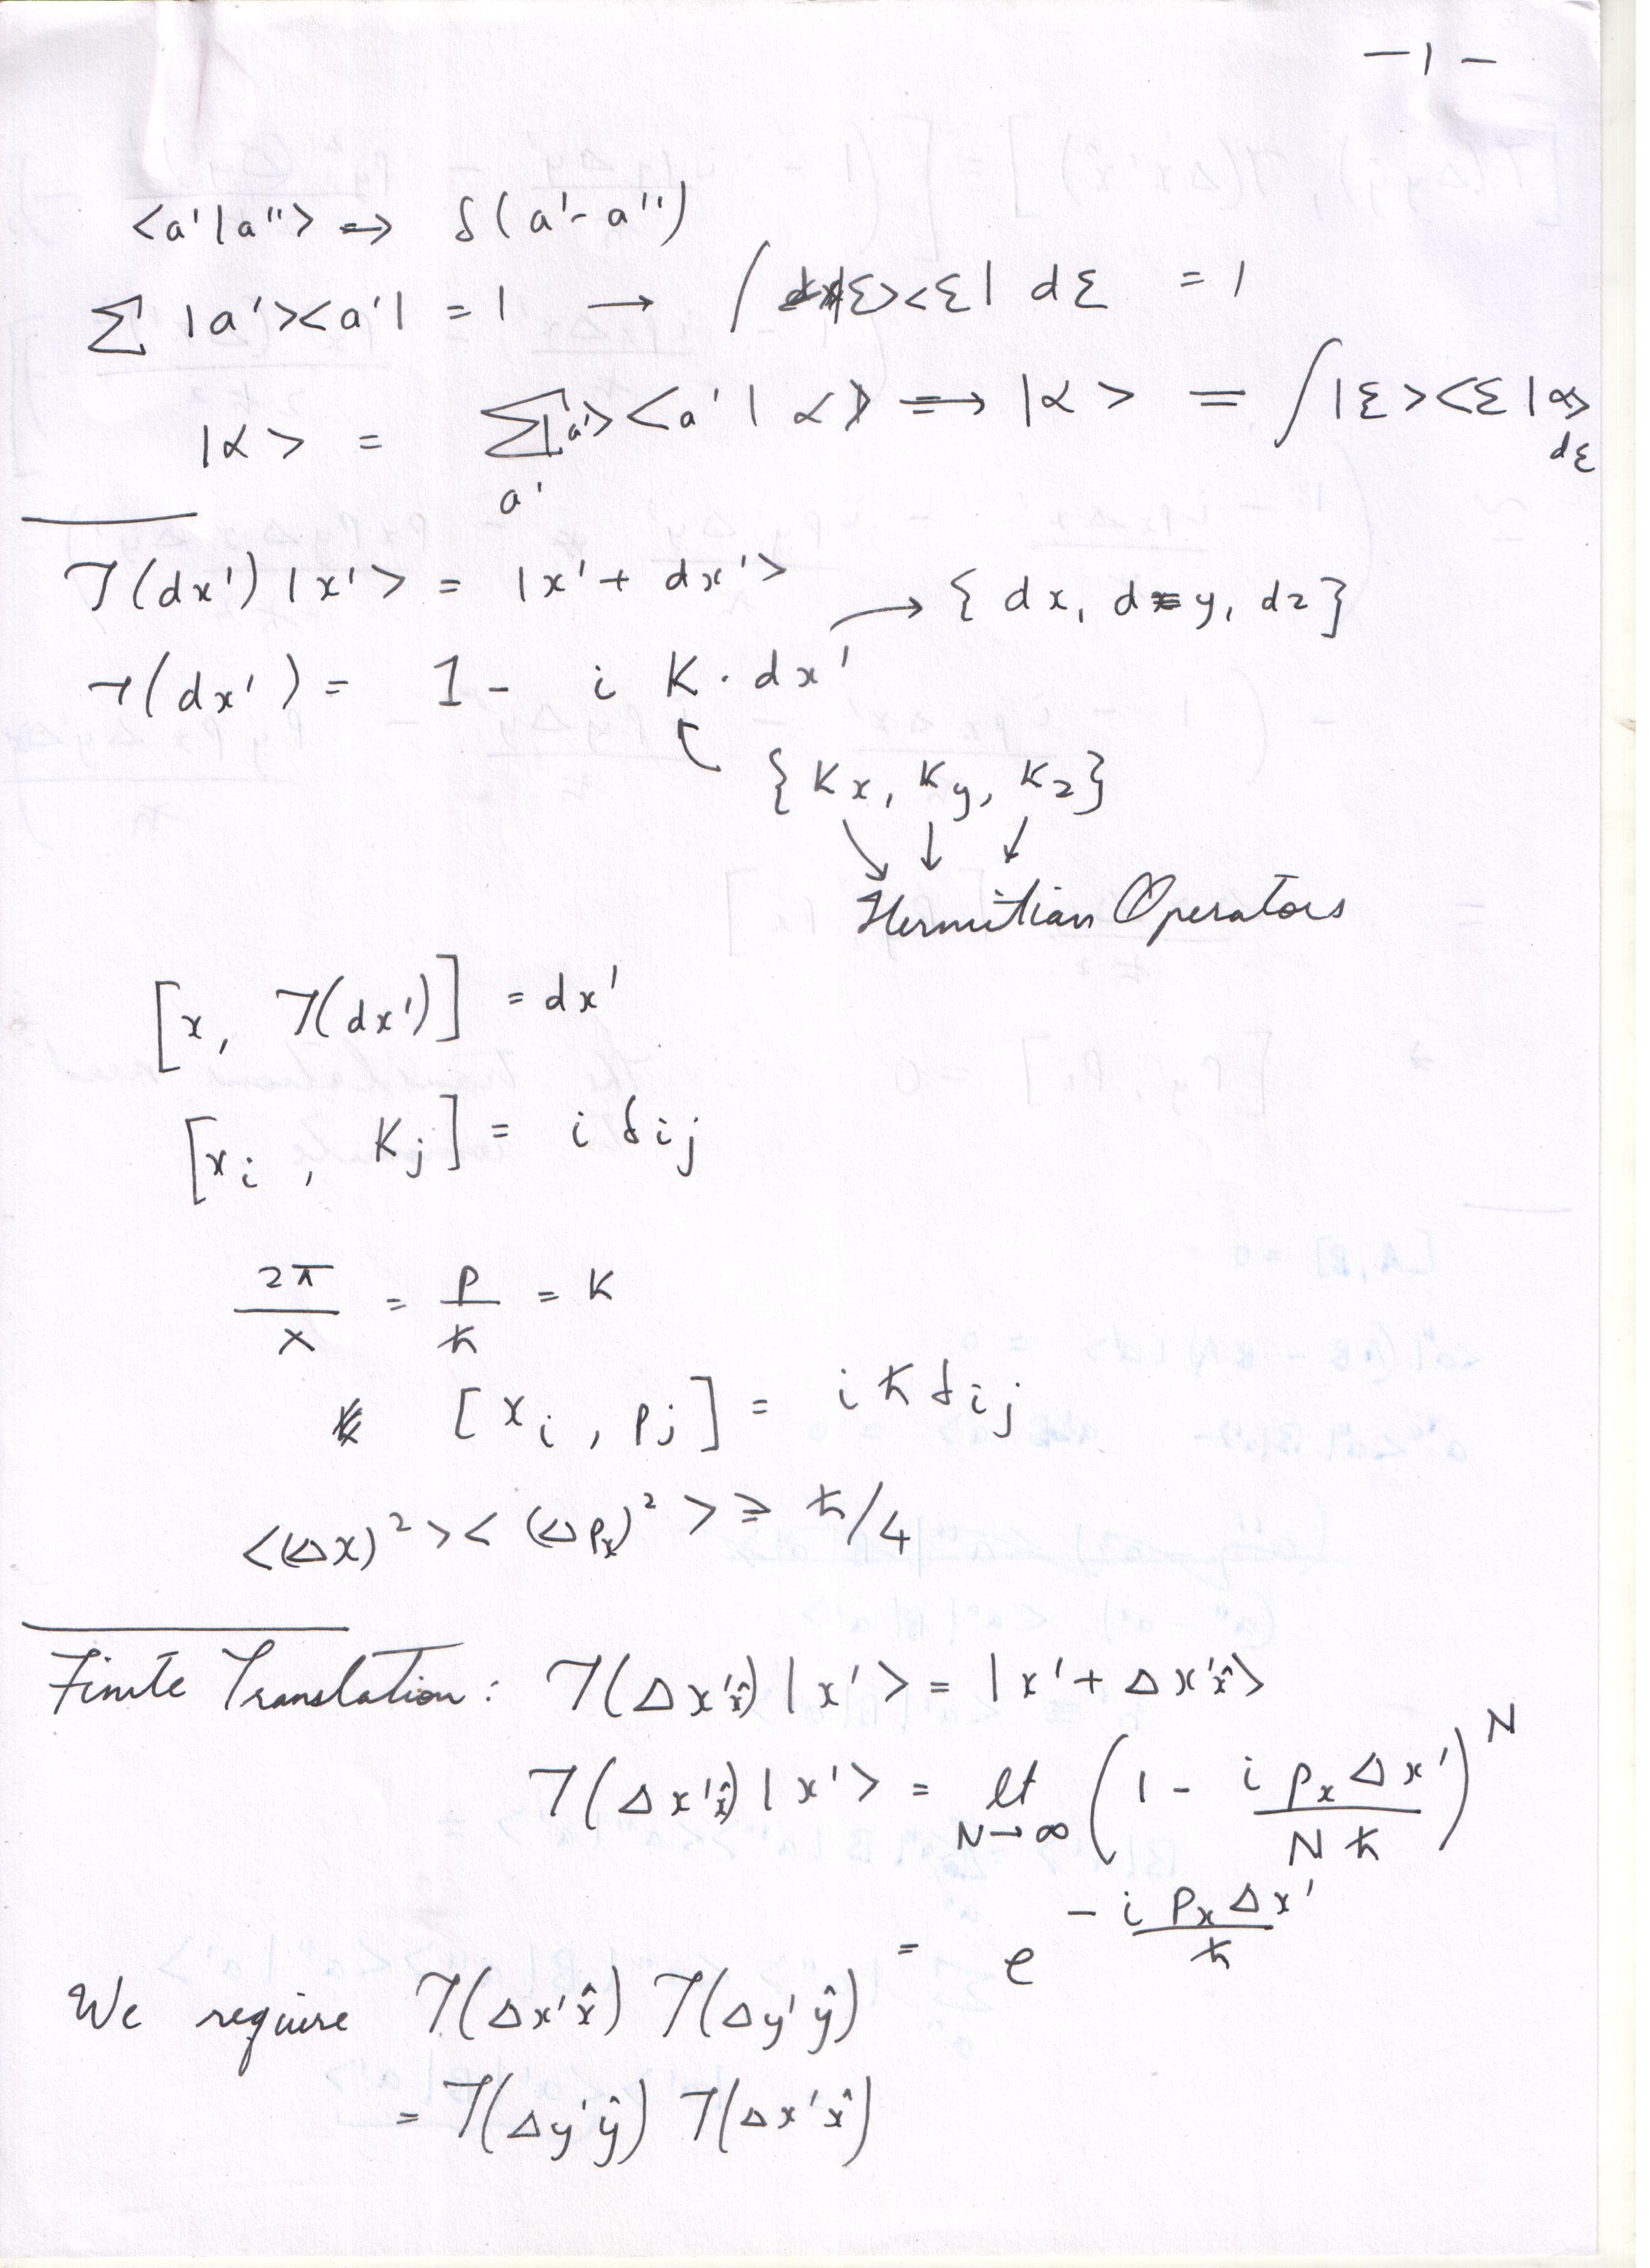 -1-
<a'|a''> ⇒ δ(a'-a'')
∑ |a'><a'| = 1 → ∫ |ξ><ξ| dξ = 1
|α> = ∑ₐ' |a'><a'|α> ⇒ |α> = ∫|ξ><ξ|α> dξ
𝒯(dx')|x'> = |x'+dx'>
→ {dx, dy, dz}
𝒯(dx') = 1 - i K·dx'
{Kx, Ky, Kz}
Hermitian Operators
[x, 𝒯(dx')] = dx'
[xᵢ, Kⱼ] = i δij
2π/λ = p/ħ = K
[xᵢ, pⱼ] = iħδij
<(Δx)²><(Δpx)²> ≥ ħ/4
Finite Translation: 𝒯(Δx'x̂)|x'> = |x'+Δx'x̂>
𝒯(Δx'x̂)|x'> = lt N→∞ (1 - i px Δx' / Nħ)^N
= e^(-i px Δx' / ħ)
We require 𝒯(Δx'x̂) 𝒯(Δy'ŷ)
= 𝒯(Δy'ŷ) 𝒯(Δx'x̂)